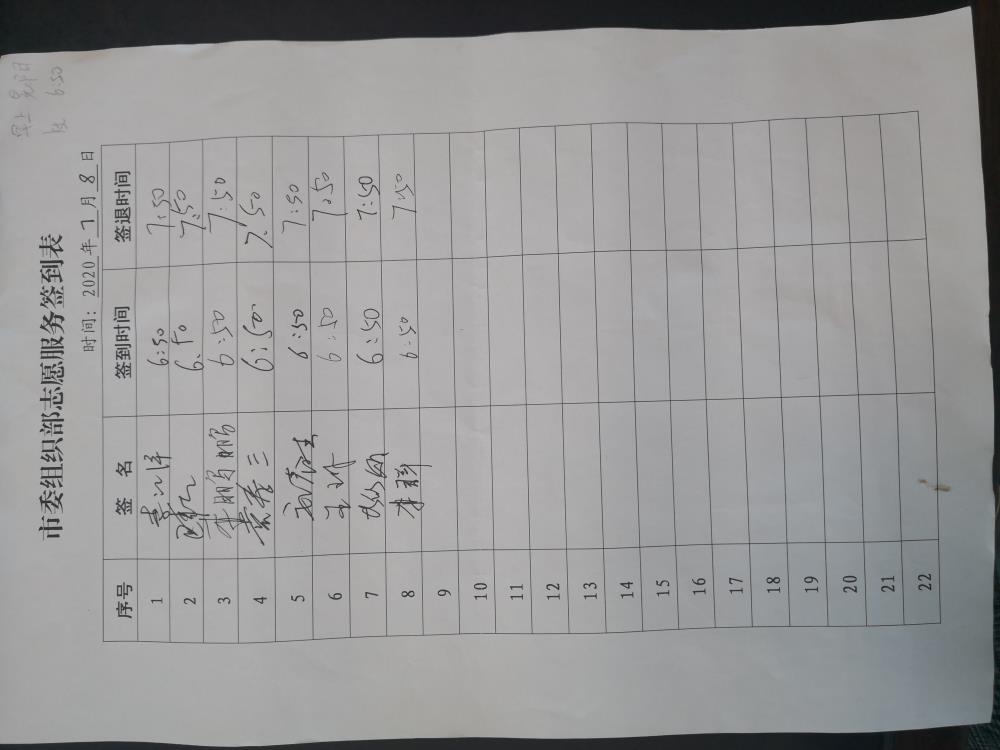 早上
6:50
市委组织部志愿服务签到表
时间: 2020 年 7 月 8 日
序号 签 名 签到时间 签退时间
1 6:50 7:50
2 6.50 7.50
3 李鹏鹏 6:50 7:50
4 6:50 7.50
5 6:50 7:50
6 6:50 7.50
7 6:50 7:50
8 6:50 7:50
9
10
11
12
13
14
15
16
17
18
19
20
21
22